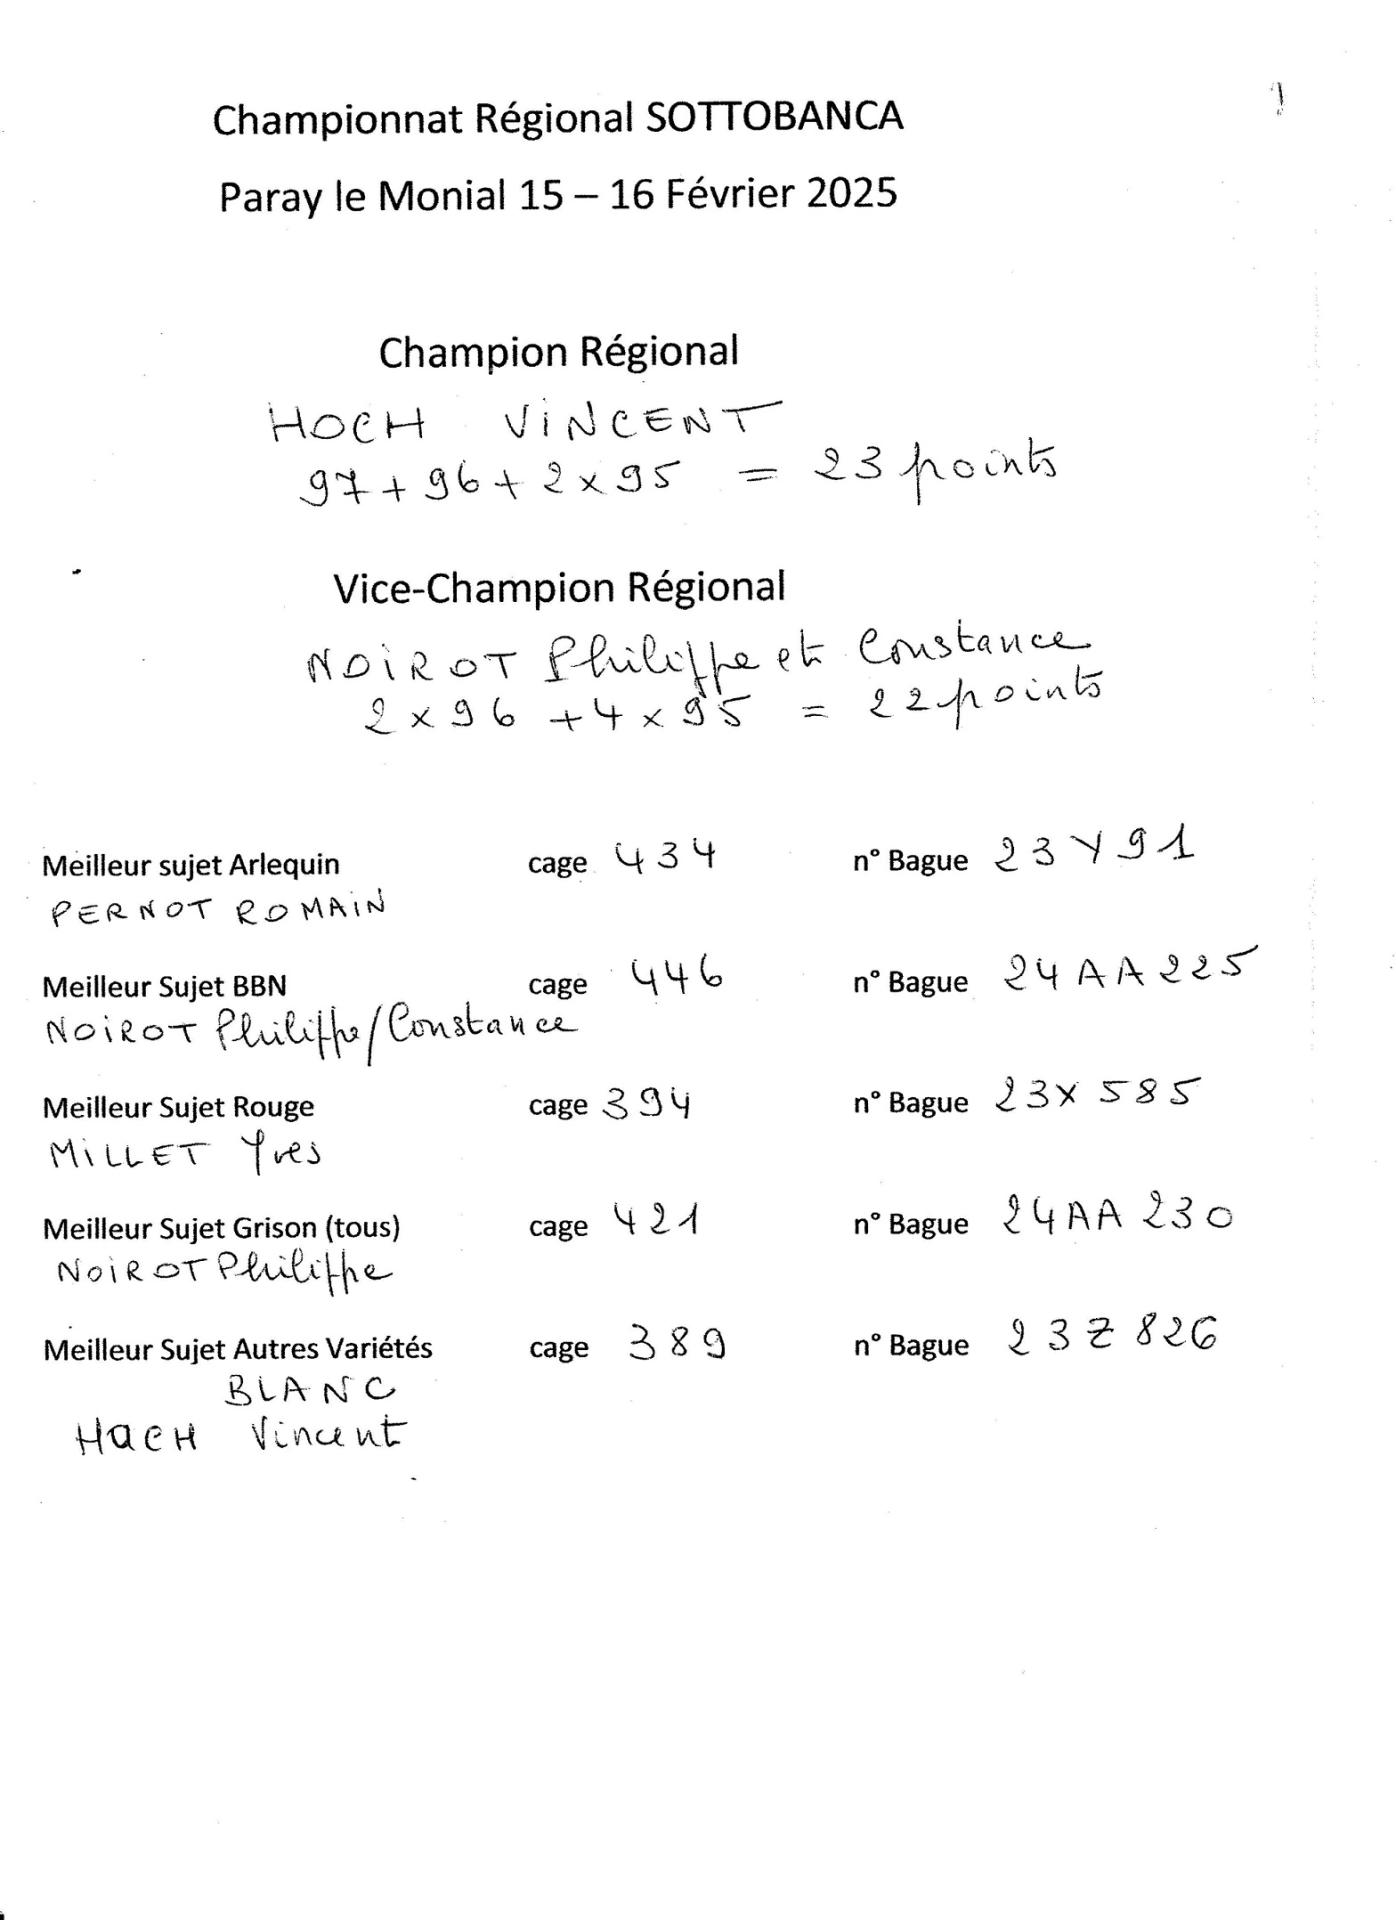 Championnat Régional SOTTOBANCA
Paray le Monial 15 – 16 Février 2025
Champion Régional
HOCH VINCENT
97 + 96 + 2 x 95 = 23 points
Vice-Champion Régional
NOIROT Philippe et Constance
2 x 96 + 4 x 95 = 22 points
Meilleur sujet Arlequin cage 434 n° Bague 23 Y 91
PERNOT ROMAIN
Meilleur Sujet BBN cage 446 n° Bague 24 AA 225
NOIROT Philippe/Constance
Meilleur Sujet Rouge cage 394 n° Bague 23X 585
MILLET Yves
Meilleur Sujet Grison (tous) cage 421 n° Bague 24AA 230
NOIROT Philippe
Meilleur Sujet Autres Variétés cage 389 n° Bague 23Z 826
BLANC
HOCH Vincent